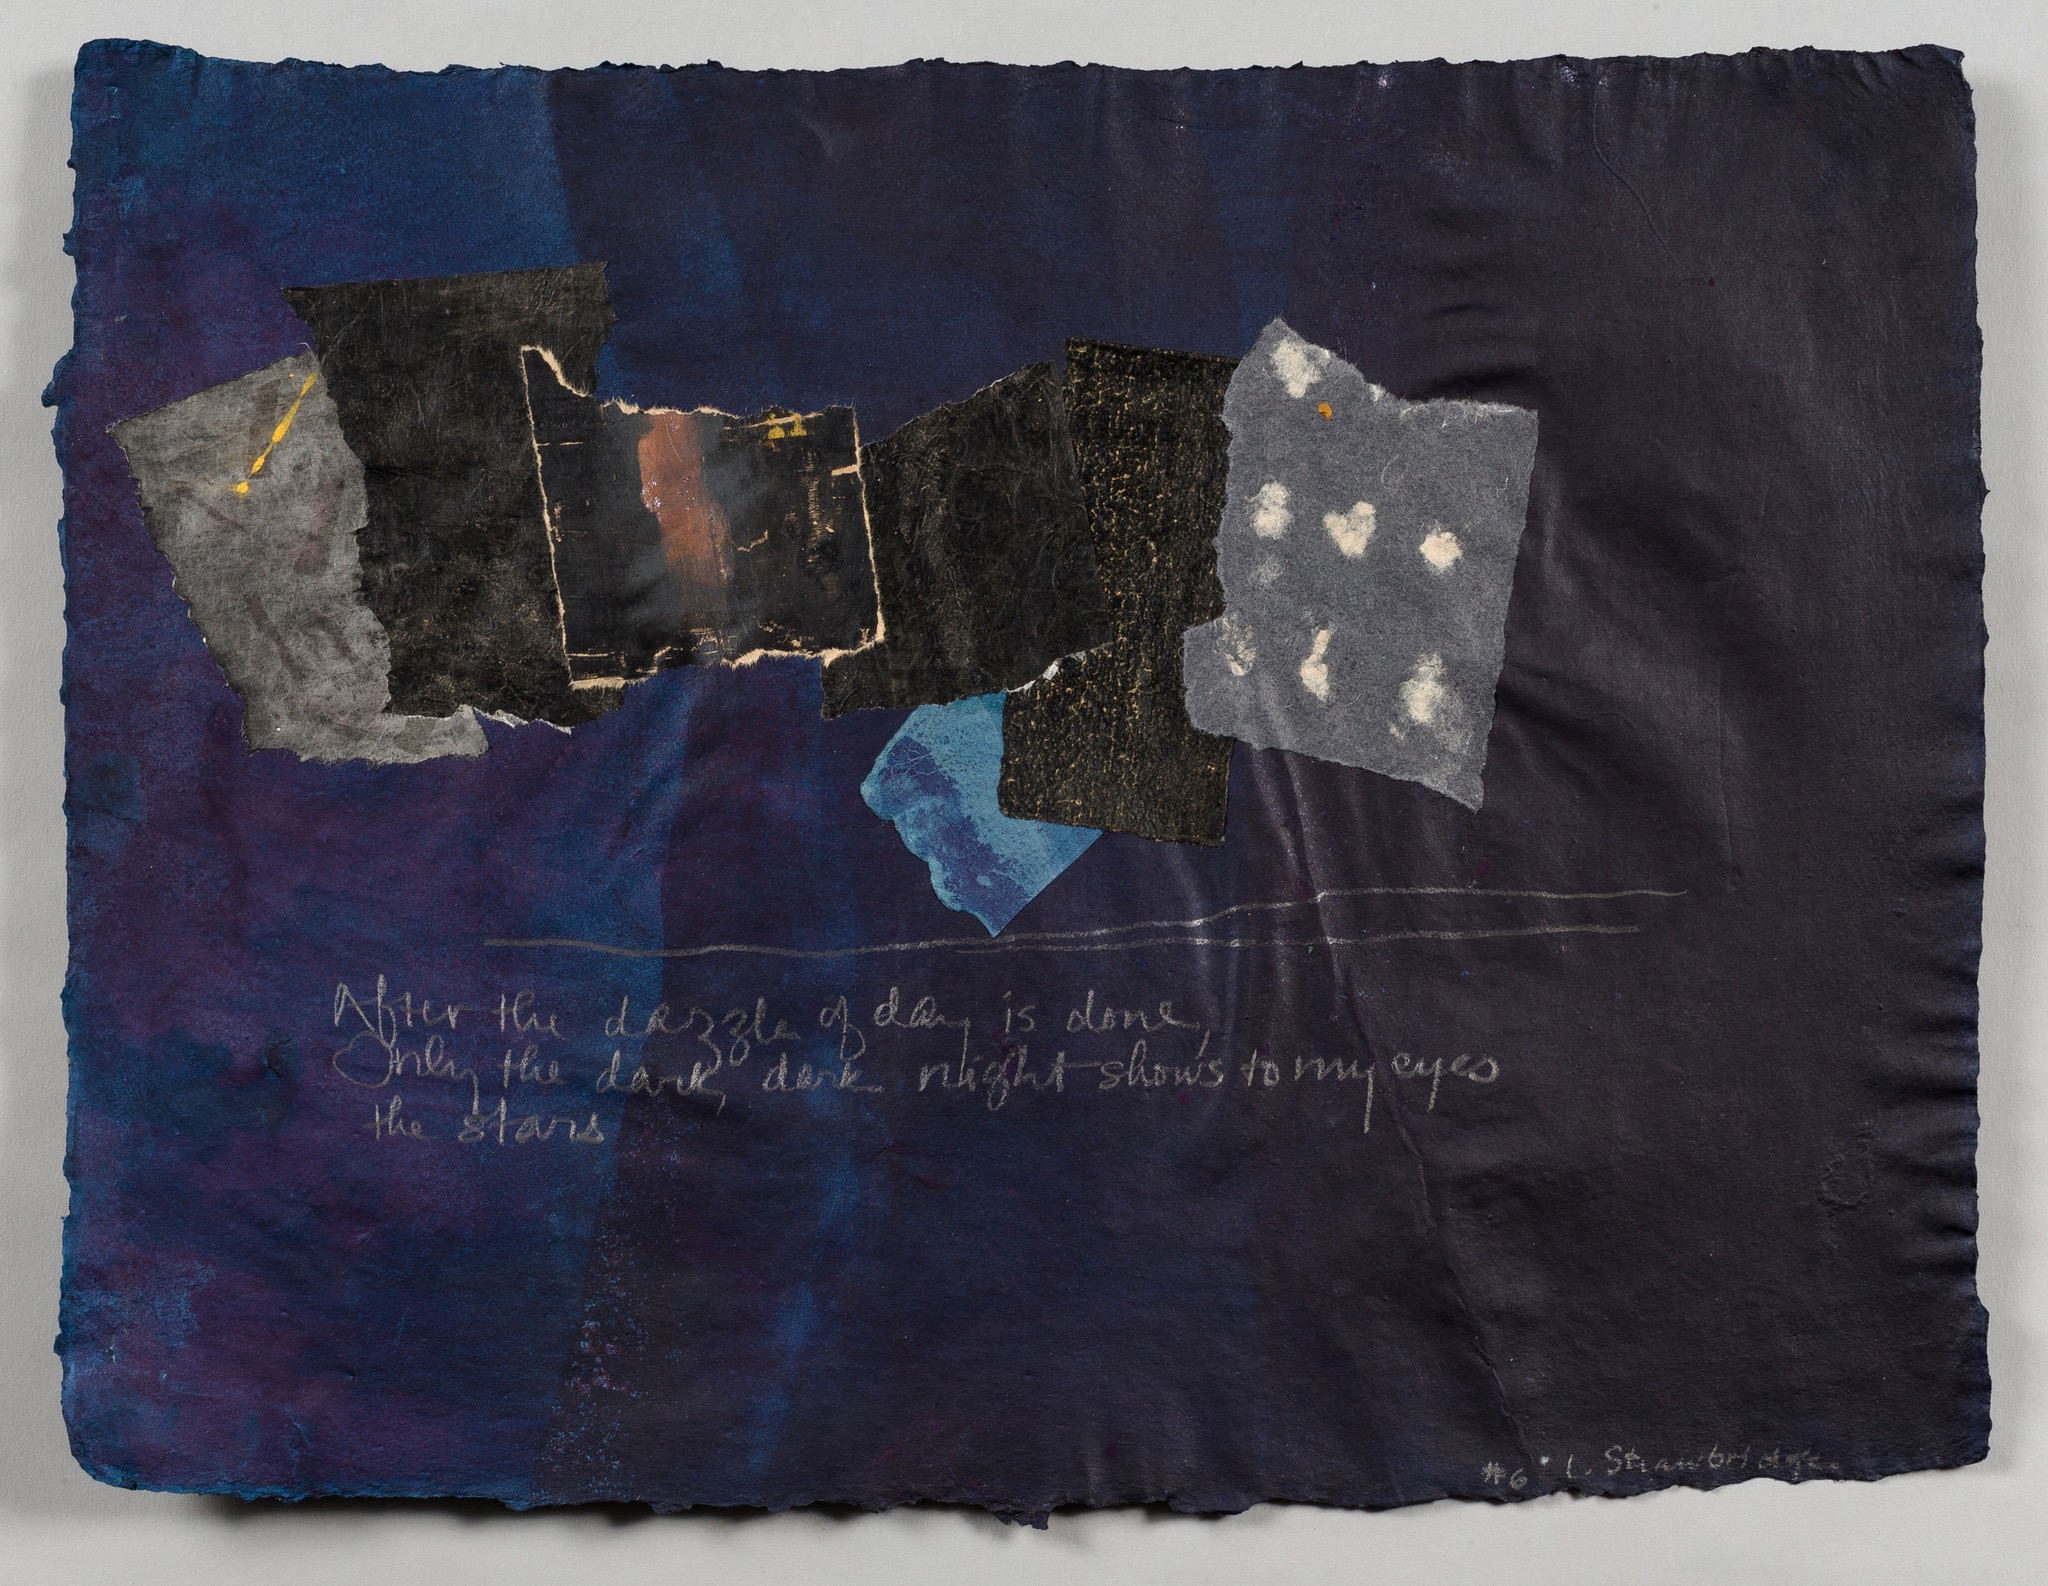 After the dazzle of day is done,
Only the dark, dark night shows to my eyes
the stars
#6 L. Strawbridge